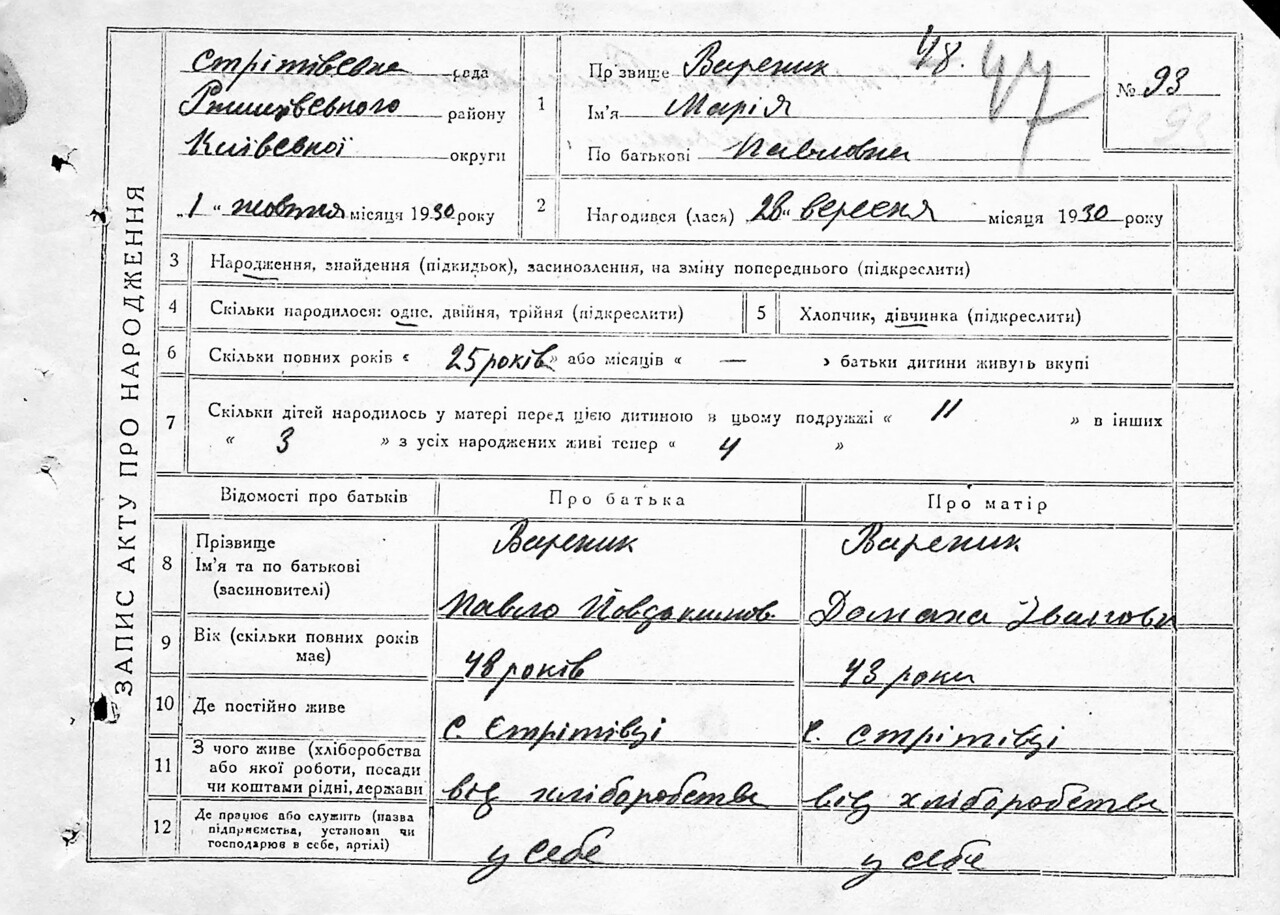 ЗАПИС АКТУ ПРО НАРОДЖЕННЯ
Стрітівська рада
Ржищівського району
Київської округи
„1“ жовтня місяця 1930 року
1
Прізвище Вареник
48. 47
Ім'я Марія
По батькові Павловна
№ 93
93
2
Народився (лася) 28 „ вересня місяця 1930 року
3 Народження, знайдення (підкидьок), засиновлення, на зміну попереднього (підкреслити)
4 Скільки народилося: одне, двійня, трійня (підкреслити)
5 Хлопчик, дівчинка (підкреслити)
6 Скільки повних років « 25 років » або місяців « — » батьки дитини живуть вкупі
7 Скільки дітей народилось у матері перед цією дитиною в цьому подружжі « 11 » в інших
« 3 » з усіх народжених живі тепер « 4 »
Відомості про батьків Про батька Про матір
8 Прізвище
Ім'я та по батькові
(засиновителі)
Вареник
Павло Йовдокимов.
Вареник
Домаха Івановна
9 Вік (скільки повних років
має)
48 років
43 роки
10 Де постійно живе
с. Стрітівці
с. Стрітівці
11 З чого живе (хліборобства
або якої роботи, посади
чи коштами рідні, держави
від хліборобства
від хліборобства
12 Де працює або служить (назва
підприємства, установи чи
господарює в себе, артілі)
у себе
у себе